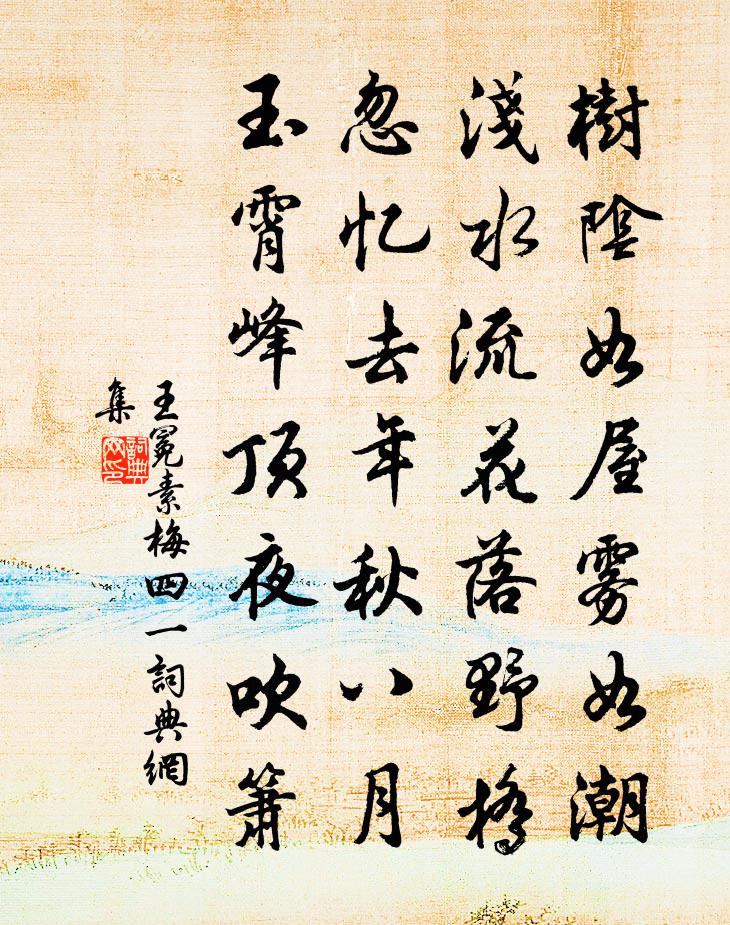 樹陰如屋雾如潮
淺水流花落野橋
忽忆去年秋八月
玉霄峰頂夜吹簫
王冕素梅四一詞典網
集
詞典
网印